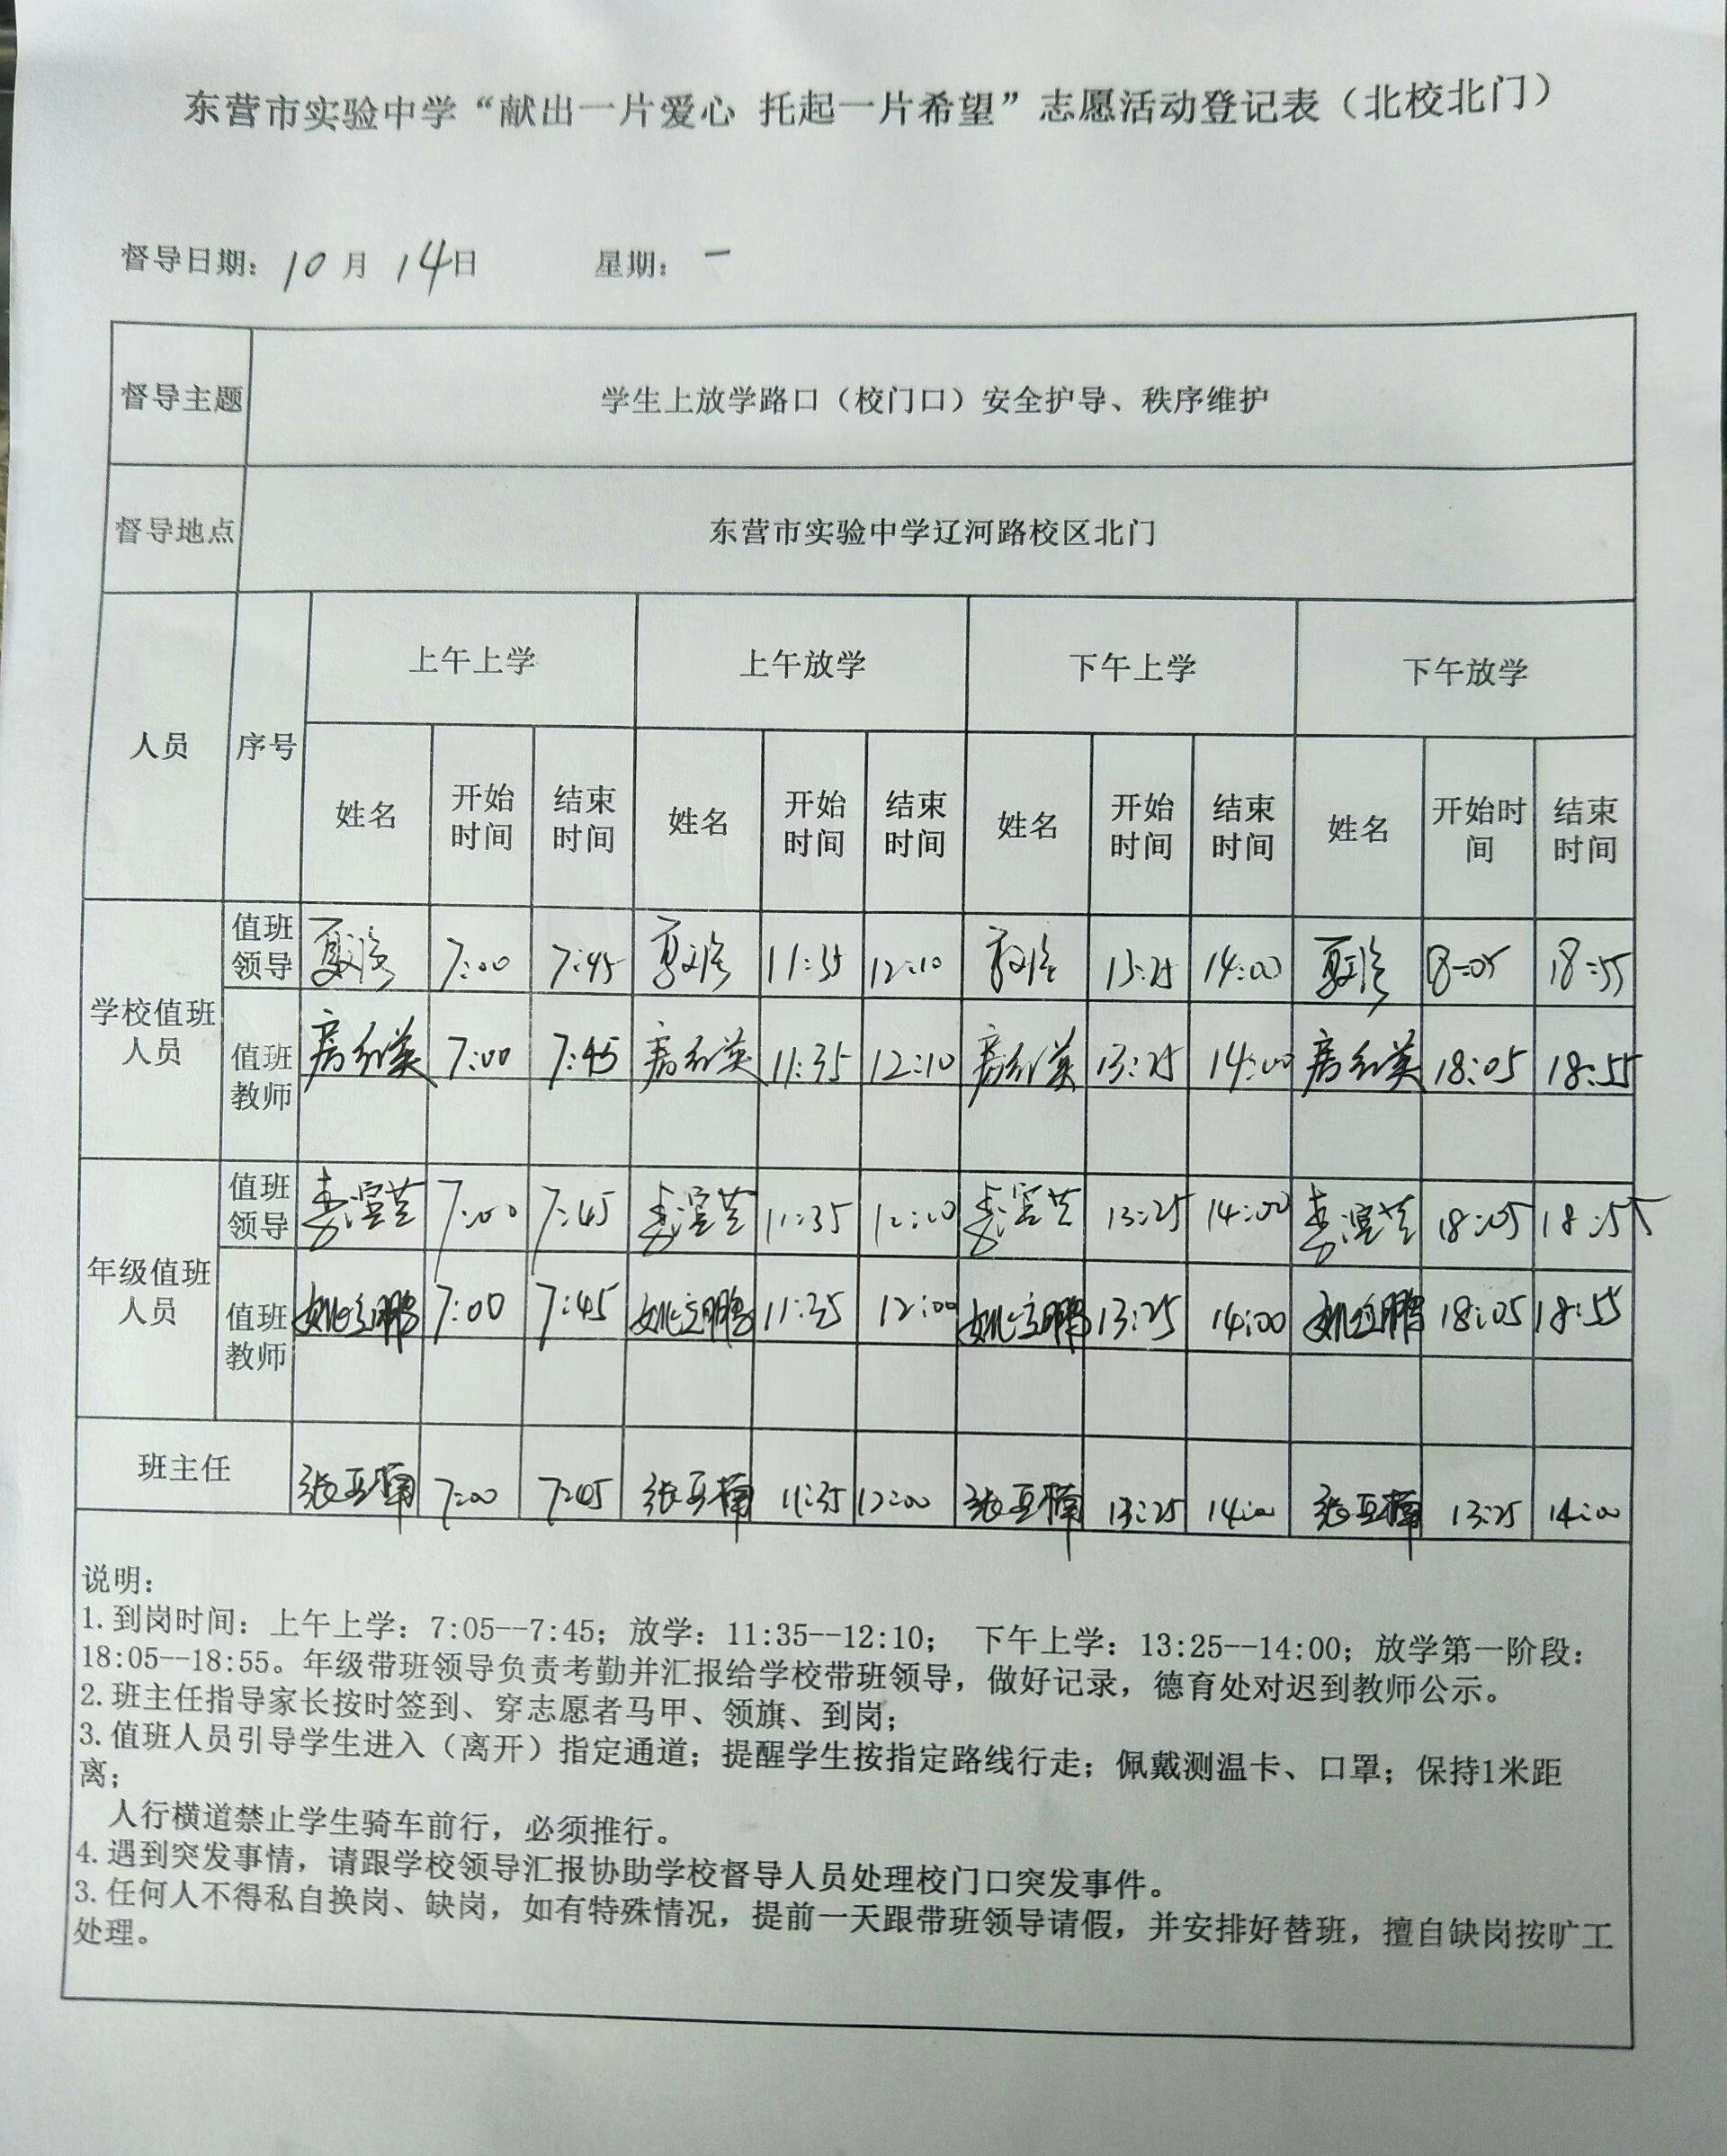 东营市实验中学“献出一片爱心 托起一片希望”志愿活动登记表（北校北门）
督导日期：10月14日 星期：一
督导主题 学生上放学路口（校门口）安全护导、秩序维护
督导地点 东营市实验中学辽河路校区北门
人员 序号 上午上学 上午放学 下午上学 下午放学
姓名 开始时间 结束时间 姓名 开始时间 结束时间 姓名 开始时间 结束时间 姓名 开始时间 结束时间
学校值班人员
值班领导 7:00 7:45 11:35 12:10 13:25 14:00 18:05 18:55
值班教师 房红英 7:00 7:45 房红英 11:35 12:10 房红英 13:25 14:00 房红英 18:05 18:55
年级值班人员
值班领导 7:00 7:45 11:35 13:25 14:00 18:05 18:55
值班教师 姚立鹏 7:00 7:45 姚立鹏 11:35 12:00 姚立鹏 13:25 14:00 姚立鹏 18:05 18:55
班主任 张亚楠 7:00 7:45 张亚楠 11:35 12:00 张亚楠 13:25 14:00 张亚楠 13:25 14:00
说明：
1.到岗时间：上午上学：7:05--7:45；放学：11:35--12:10； 下午上学：13:25--14:00；放学第一阶段：
18:05--18:55。年级带班领导负责考勤并汇报给学校带班领导，做好记录，德育处对迟到教师公示。
2.班主任指导家长按时签到、穿志愿者马甲、领旗、到岗；
3.值班人员引导学生进入（离开）指定通道；提醒学生按指定路线行走；佩戴测温卡、口罩；保持1米距
离；
人行横道禁止学生骑车前行，必须推行。
4.遇到突发事情，请跟学校领导汇报协助学校督导人员处理校门口突发事件。
3.任何人不得私自换岗、缺岗，如有特殊情况，提前一天跟带班领导请假，并安排好替班，擅自缺岗按旷工
处理。